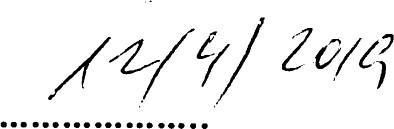 12/4/2019
....................